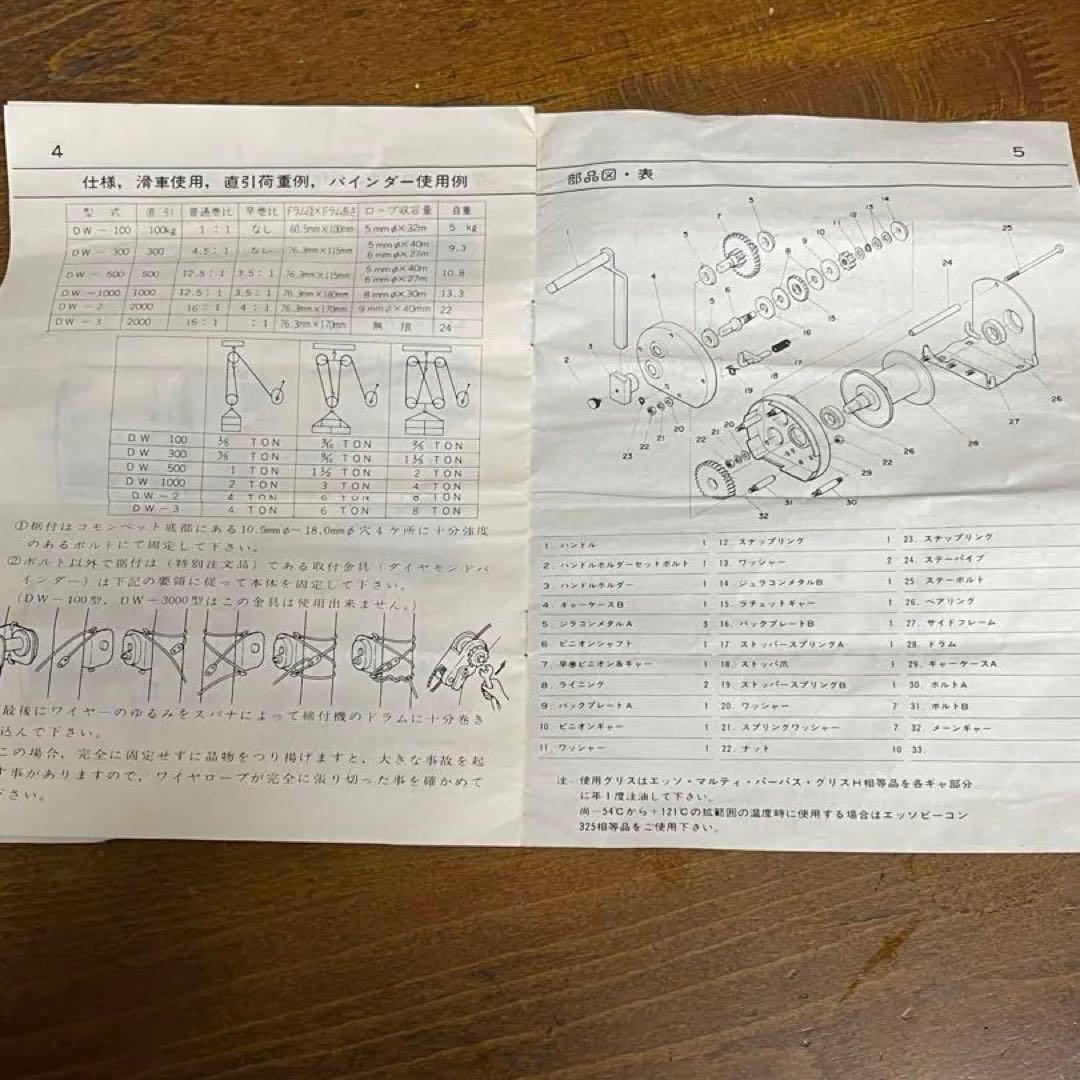 4
仕様，滑車使用，直引荷重例，バインダー使用例
型式 直引 普通巻比 早巻比 ドラム径×ドラム長さ ロープ収容量 自重
DW-100 100kg 1：1 なし 60.5mm×100mm 5mmφ×32m 5 kg
DW-300 300 4.5：1 なし 76.3mm×115mm 5mmφ×40m 6mmφ×27m 9.3
DW-500 500 12.5：1 3.5：1 76.3mm×115mm 5mmφ×40m 6mmφ×27m 10.8
DW-1000 1000 12.5：1 3.5：1 76.3mm×180mm 8mmφ×30m 13.3
DW-2 2000 16：1 4：1 76.3mm×170mm 9mmφ×40mm 22
DW-3 2000 16：1 ：1 76.3mm×170mm 無限 24
DW 100 TON TON TON
DW 300 TON TON TON
DW 500 1 TON TON 2 TON
DW 1000 2 TON 3 TON 4 TON
DW-2 4 TON 6 TON 8 TON
DW-3 4 TON 6 TON 8 TON
①据付はコモンベット底部にある10.5mmφ−18.0mmφ穴4ケ所に十分強度
のあるボルトにて固定して下さい。
②ボルト以外で据付は（特別注文品）である取付金具（ダイヤモンドバ
インダー）は下記の要領に従って本体を固定して下さい。
（DW−100型，DW−3000型はこの金具は使用出来ません。）
最後にワイヤーのゆるみをスパナによって締付機のドラムに十分巻き
込んで下さい。
この場合，完全に固定せずに品物をつり揚げますと，大きな事故を起
す事がありますので，ワイヤロープが完全に張り切った事を確かめて
下さい。
5
部品図・表
1. ハンドル 1
2. ハンドルホルダーセットボルト 1
3. ハンドルホルダー 1
4. ギャーケースB 1
5. ジュラコンメタルA 3
6. ピニオンシャフト 1
7. 早巻ピニオン&ギャー 1
8. ライニング 2
9. バックプレートA 1
10. ピニオンギャー 1
11. ワッシャー 1
12. スナップリング 1
13. ワッシャー 2
14. ジュラコンメタルB 1
15. ラチェットギャー 1
16. バックプレートB 1
17. ストッパースプリングA 1
18. ストッパ爪 1
19. ストッパースプリングB 1
20. ワッシャー 7
21. スプリングワッシャー 7
22. ナット 10
23. スナップリング
24. ステーパイプ
25. ステーボルト
26. ベアリング
27. サイドフレーム
28. ドラム
29. ギャーケースA
30. ボルトA
31. ボルトB
32. メーンギャー
33.
注 使用グリスはエッソ・マルティ・パーパス・グリスH相等品を各ギャ部分
に年1度注油して下さい。
尚−54℃から＋121℃の拡範囲の温度時に使用する場合はエッソビーコン
325相等品をご使用下さい。